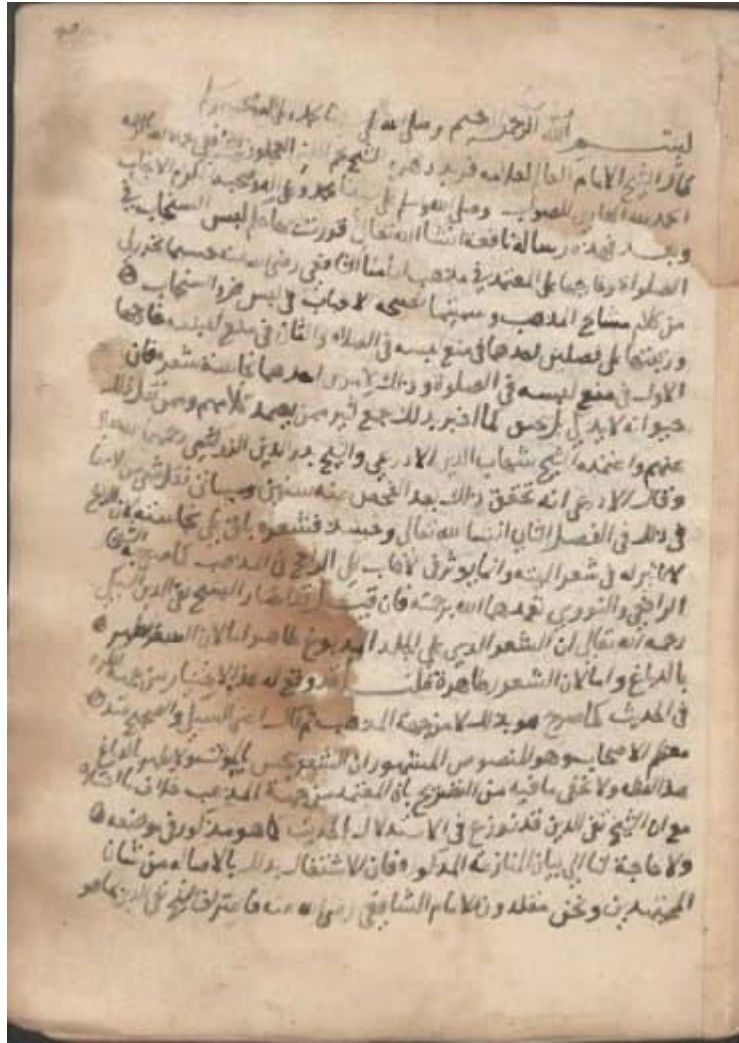 بسم الله الرحمن الرحيم وصلى الله على
قال الشيخ الامام العالم العلامه فريد دهره الشيخ
الحمد لله الهادي للصواب وصلى الله وسلم على سيدنا محمد وعلى اله
وبعد فهذه رسالة نافعة انشا الله تعالى قررت فيها حكم لبس السنجاب في
الصلوة وخارجها على المعتمد في مذهب امامنا الشافعي رضي الله عنه حسبما
من كلام مشايخ المذهب وسميتها الاحباب في لبس فرو السنجاب
ورتبتها على فصلين احدها في منع لبسه في الصلاه والثاني في منع لبسه خارجها
الاول في منع لبسه في الصلوة وذلك لامرين احدهما نجاسة شعره فان
حيوانه لا يذبح بل يخنق كما اخبر بذلك جمع كثير ممن يعتمد كلامهم وممن نقل ذلك
عنهم واعتمده الشيخ شهاب الدين الاذرعي والشيخ بدر الدين الزركشي
وقال الاذرعي انه تحقق ذلك بعد الفحص عنه سنين وسياتي نقل شي من كلامهما
في ذلك في الفصل الثاني ان شا الله تعالى وحينئذ فشعره باق على نجاسته لان الدباغ
لا تاثير له في شعر الميته وانما يوثر في الاهاب على الراجح في المذهب كما صححه الشيخان
الرافعي والنووي تغمدهما الله برحمته فان قيل قد اختار الشيخ تقي الدين السبكي
رحمه الله تعالى ان الشعر الذي على الجلد المدبوغ طاهر اما لان الشعر طهر
بالدباغ واما لان الشعور طاهرة قلت قد وقع له هذا الاختيار من جهة
في الحديث كما صرح هو بذلك لا من جهة المذهب ثم قال اعني السبكي والصحيح عند
معظم الاصحاب وهو المنصوص المشهور ان الشعر ينجس بالموت ولا يطهر بالدباغ
هذا لفظه ولا يخفى ما فيه من التصريح بان المعتمد من جهة المذهب خلاف ما اختاره
مع ان الشيخ تقي الدين قد نوزع في الاستدلال بالحديث كما هو مذكور في موضعه
ولا حاجة لنا الى بيان المنازعة المذكوره فان الاشتغال بذلك بالاصاله من شان
المجتهدين ونحن مقلدون الامام الشافعي رضي الله عنه فاعتراف الشيخ تقي الدين بما هو